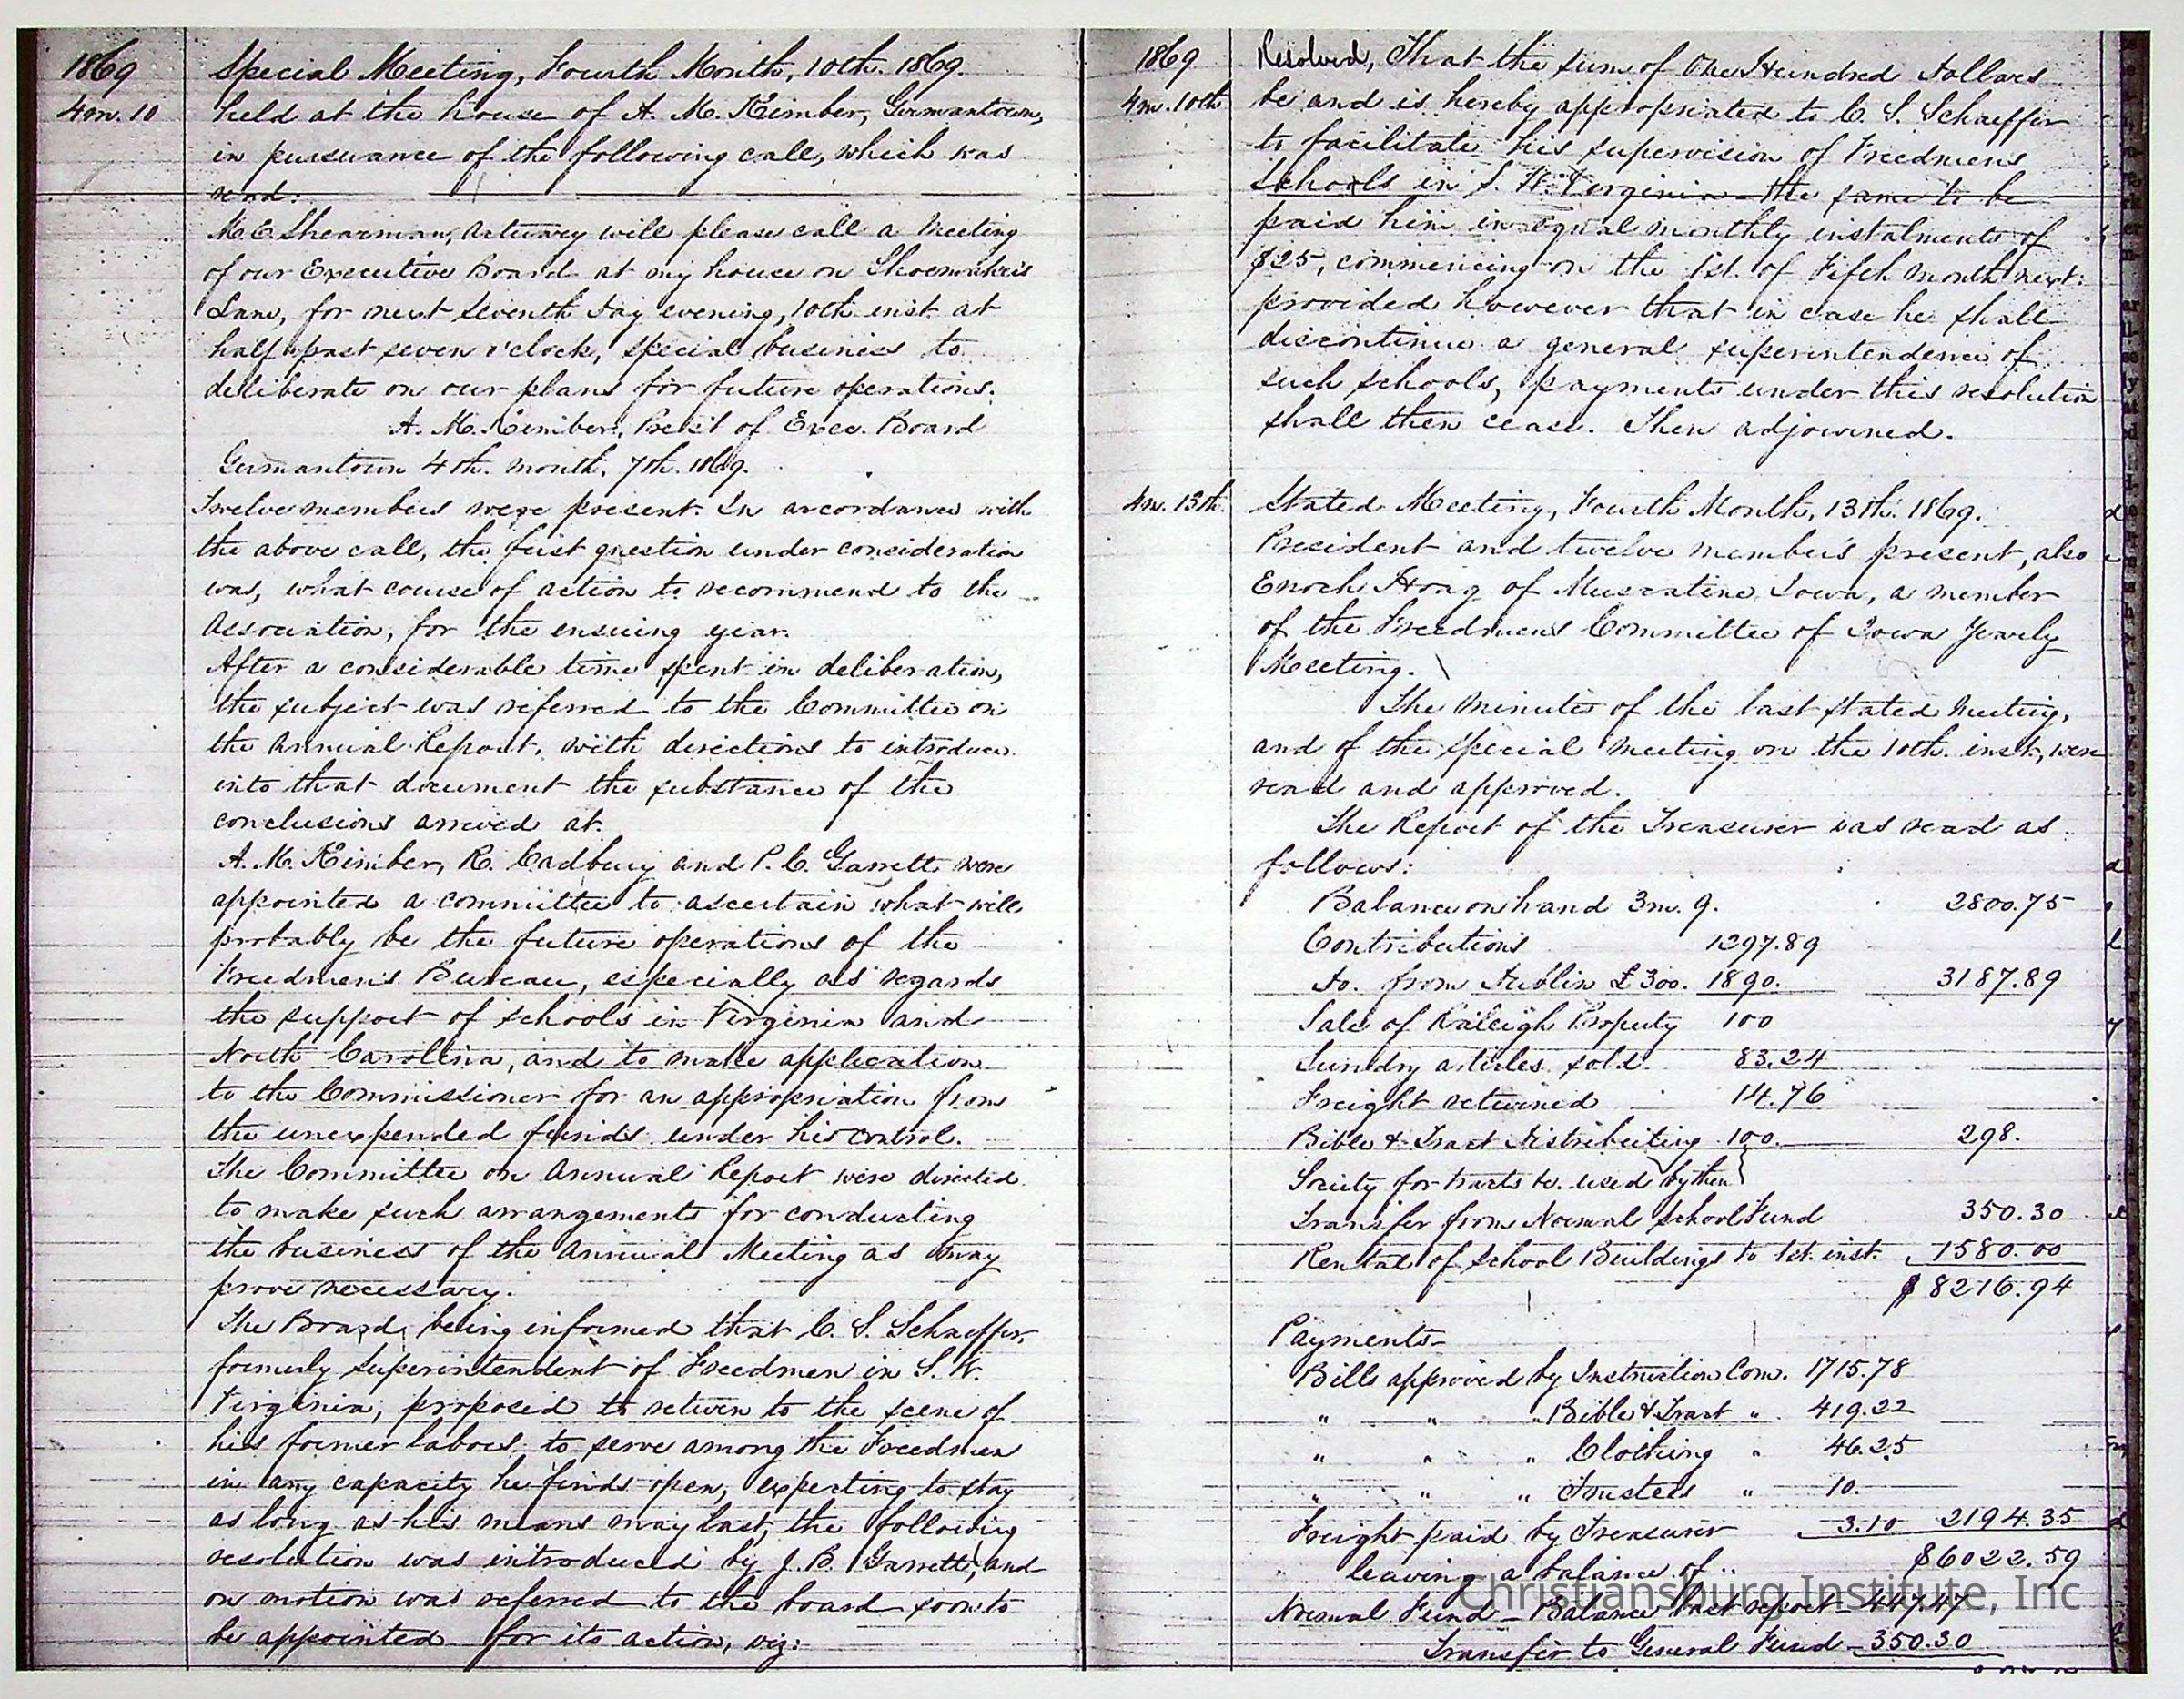 1869
4m. 10
Special Meeting, Fourth Month, 10th. 1869.
held at the house of A. M. Kimber, Germantown,
in pursuance of the following call, which was
read:
M. E. Shearman, Actuary will please call a Meeting
of our Executive Board at my house on Shoemaker's
Lane, for next Seventh day evening, 10th inst. at
half past seven o'clock, special business to
deliberate on our plans for future operations.
A. M. Kimber, Pres't of Exec. Board
Germantown 4th. month, 7th. 1869.
Twelve members were present. In accordance with
the above call, the first question under consideration
was, what course of action to recommend to the
Association, for the ensuing year.
After a considerable time spent in deliberation,
the subject was referred to the Committee on
the Annual Report, with directions to introduce
into that document the substance of the
conclusions arrived at.
A. M. Kimber, R. Cadbury and P. C. Garrett were
appointed a committee to ascertain what will
probably be the future operations of the
Freedmen's Bureau, especially as regards
the support of schools in Virginia and
North Carolina, and to make application
to the Commissioner for an appropriation from
the unexpended funds under his control.
The Committee on Annual Report were directed
to make such arrangements for conducting
the business of the Annual Meeting as may
prove necessary.
The Board, being informed that C. S. Schaeffer,
formerly Superintendent of Freedmen in S. W.
Virginia, proposed to return to the scene of
his former labors, to serve among the Freedmen
in any capacity he finds open, expecting to stay
as long as his means may last, the following
resolution was introduced by J. B. Garrett, and
on motion was referred to the board soon to
be appointed for its action, viz:
1869
4m. 10th
Resolved, That the sum of One Hundred dollars
be and is hereby appropriated to C. S. Schaeffer
to facilitate his supervision of Freedmens
Schools in S. W. Virginia—the same to be
paid him in equal monthly instalments of
$25, commencing on the 1st. of Fifth month next:
provided however that in case he shall
discontinue a general superintendence of
such schools, payments under this resolution
shall then cease. Then adjourned.
4m. 13th
Stated Meeting, Fourth Month, 13th. 1869.
President and twelve members present, also
Enoch Hoag of Muscatine, Iowa, a member
of the Freedmens Committee of Iowa Yearly
Meeting.
The Minutes of the last stated Meeting,
and of the special Meeting on the 10th. inst., were
read and approved.
The Report of the Treasurer was read as
follows:
Balance on hand 3m. 9. 2800.75
Contributions 1297.89
Do. from Dublin £300. 1890. 3187.89
Sale of Raleigh Property 100
Sundry articles sold 83.24
Freight returned 14.76
Bible & Tract Distributing 100. 298.
Society for tracts to. used by them
Transfer from Normal School Fund 350.30
Rental of School Buildings to 1st. inst. 1580.00
$8216.94
Payments—
Bills approved by Instruction Com. 1715.78
" " " Bible & Tract " 419.22
" " " Clothing " 46.25
" " " Trustees " 10.
Freight paid by Treasurer 3.10 2194.35
leaving a balance of .. $6022.59
Normal Fund — Balance last report — 447.47
Transfer to General Fund — 350.30
Christiansburg Institute, Inc